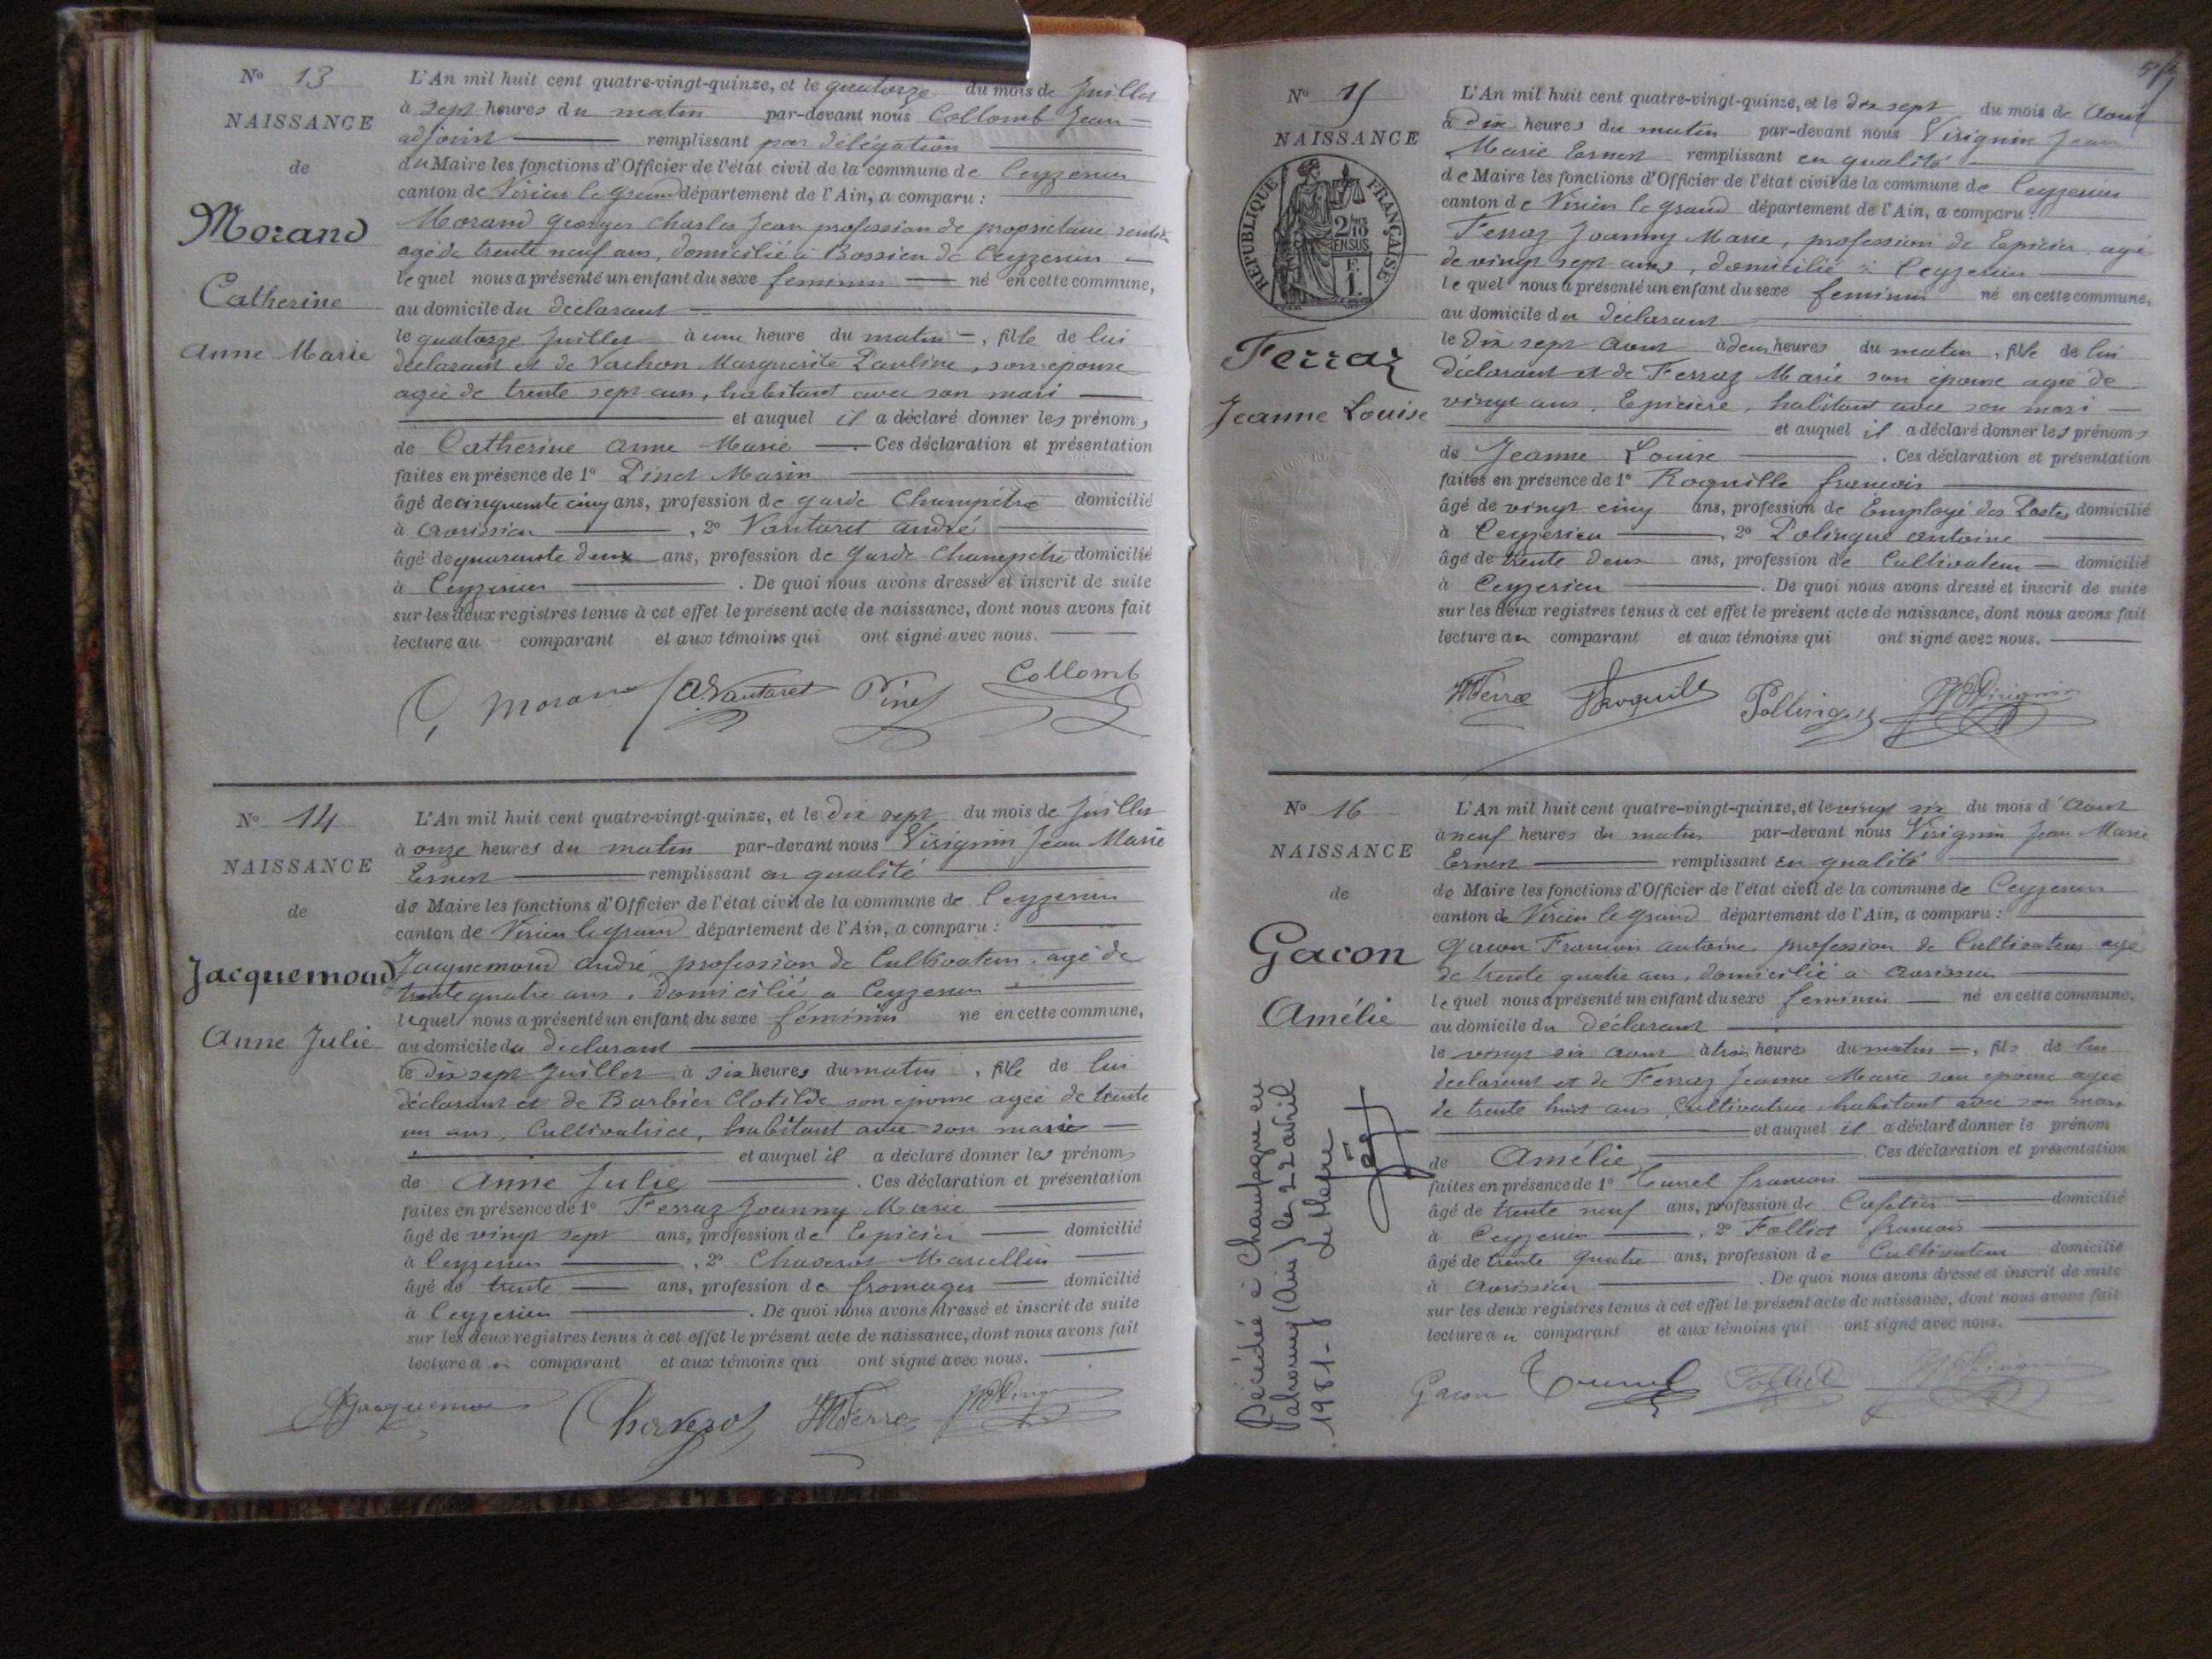 No 13
NAISSANCE
de
Morand
Catherine
Anne Marie
L'An mil huit cent quatre-vingt-quinze, et le quatorze du mois de Juillet
à sept heures du matin par-devant nous Collomb Jean
adjoint remplissant par délégation
du Maire les fonctions d'Officier de l'état civil de la commune de Ceyzerieu
canton de Virieu le grand département de l'Ain, a comparu :
Morand Georges Charles Jean profession de propriétaire rentier
agé de trente neuf ans, domicilié à Bossieu de Ceyzerieu
lequel nous a présenté un enfant du sexe feminin né en cette commune,
au domicile du declarant
le quatorze Juillet à une heure du matin, fille de lui
declarant et de Vachon Marguerite Pauline, son épouse
agée de trente sept ans, habitant avec son mari
et auquel il a déclaré donner les prénoms
de Catherine Anne Marie. Ces déclaration et présentation
faites en présence de 1o Pinet Marin
âgé de cinquante cinq ans, profession de garde Champêtre domicilié
à Avrissieu, 2o Vautaret André
âgé de quarante deux ans, profession de Garde Champêtre domicilié
à Ceyzerieu. De quoi nous avons dressé et inscrit de suite
sur les deux registres tenus à cet effet le présent acte de naissance, dont nous avons fait
lecture au comparant et aux témoins qui ont signé avec nous.
G. Morand A. Vautaret Pinet Collomb
No 14
NAISSANCE
de
Jacquemoud
Anne Julie
L'An mil huit cent quatre-vingt-quinze, et le dix sept du mois de Juillet
à onze heures du matin par-devant nous Virignin Jean Marie
Ernest remplissant en qualité
de Maire les fonctions d'Officier de l'état civil de la commune de Ceyzerieu
canton de Virieu le grand département de l'Ain, a comparu :
Jacquemoud André, profession de Cultivateur, agé de
trente quatre ans, domicilié a Ceyzerieu
lequel nous a présenté un enfant du sexe féminin né en cette commune,
au domicile du déclarant
le dix sept Juillet à six heures du matin, fille de lui
déclarant et de Barbier Clotilde son épouse agée de trente
un ans, Cultivatrice, habitant avec son mari
et auquel il a déclaré donner les prénoms
de Anne Julie. Ces déclaration et présentation
faites en présence de 1o Ferraz Joanny Marie
âgé de vingt sept ans, profession de Epicier domicilié
à Ceyzerieu, 2o Chaverot Marcellin
âgé de trente ans, profession de fromager domicilié
à Ceyzerieu. De quoi nous avons dressé et inscrit de suite
sur les deux registres tenus à cet effet le présent acte de naissance, dont nous avons fait
lecture au comparant et aux témoins qui ont signé avec nous.
Jacquemoud Chaverot JMFerra Virignin
No 15
NAISSANCE
REPUBLIQUE FRANÇAISE
2/10 EN SUS
F. 1.
Ferraz
Jeanne Louise
L'An mil huit cent quatre-vingt-quinze, et le dix sept du mois de Aout
à dix heures du matin par-devant nous Virignin Jean
Marie Ernest remplissant en qualité
de Maire les fonctions d'Officier de l'état civil de la commune de Ceyzerieu
canton de Virieu le grand département de l'Ain, a comparu :
Ferraz Joanny Marie, profession de Epicier agé
de vingt sept ans, domicilié à Ceyzerieu
lequel nous a présenté un enfant du sexe feminin né en cette commune,
au domicile du déclarant
le dix sept Aout à deux heures du matin, fille de lui
déclarant et de Ferraz Marie son épouse agée de
vingt ans, Epicière, habitant avec son mari
et auquel il a déclaré donner les prénoms
de Jeanne Louise. Ces déclaration et présentation
faites en présence de 1o Roquille francois
âgé de vingt cinq ans, profession de Employé des Postes domicilié
à Ceyzerieu, 2o Polingue antoine
âgé de trente deux ans, profession de Cultivateur domicilié
à Ceyzerieu. De quoi nous avons dressé et inscrit de suite
sur les deux registres tenus à cet effet le présent acte de naissance, dont nous avons fait
lecture au comparant et aux témoins qui ont signé avec nous.
JMFerra Roquille Pollingue Virignin
No 16
NAISSANCE
de
Gacon
Amélie
Décédée à Champagne en
Valromey (Ain) le 22 avril
1981 -
L'An mil huit cent quatre-vingt-quinze, et le vingt six du mois d'Aout
à neuf heures du matin par-devant nous Virignin Jean Marie
Ernest remplissant en qualité
de Maire les fonctions d'Officier de l'état civil de la commune de Ceyzerieu
canton de Virieu le grand département de l'Ain, a comparu :
Gacon Francois antoine profession de Cultivateur agé
de trente quatre ans, domicilié à Avrissieu
lequel nous a présenté un enfant du sexe feminin né en cette commune,
au domicile du déclarant
le vingt six Aout à trois heures du matin, fille de lui
declarant et de Ferraz Jeanne Marie son épouse agée
de trente huit ans Cultivatrice, habitant avec son mari
et auquel il a déclaré donner le prénom
de Amélie. Ces déclaration et présentation
faites en présence de 1o Tunel francois
âgé de trente neuf ans, profession de Cafetier domicilié
à Ceyzerieu, 2o Folliet francois
âgé de trente quatre ans, profession de Cultivateur domicilié
à Avrissieu. De quoi nous avons dressé et inscrit de suite
sur les deux registres tenus à cet effet le présent acte de naissance, dont nous avons fait
lecture au comparant et aux témoins qui ont signé avec nous.
Gacon Tunel Folliet Virignin